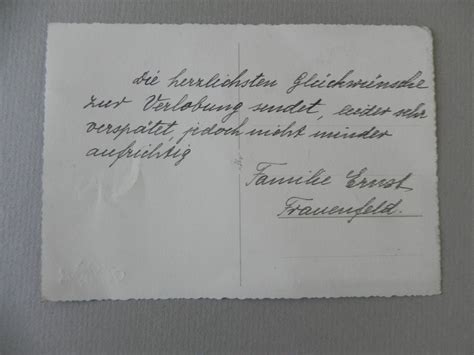 Die herzlichsten Glückwünsche
zur Verlobung sendet, leider sehr
verspätet, jedoch nicht minder
aufrichtig
Familie Ernst
Frauenfeld.